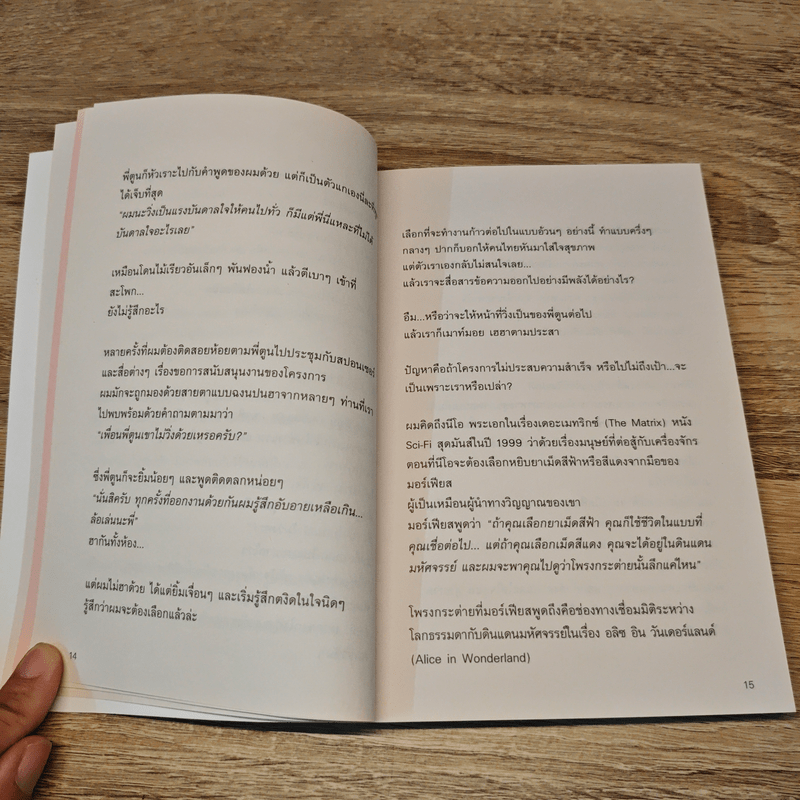 พี่ตูนก็หัวเราะไปกับคำพูดของผมด้วย แต่ก็เป็นตัวแกเองนี่ละที่
ได้เจ็บที่สุด
“ผมนะวิ่งเป็นแรงบันดาลใจให้คนไปทั่ว ก็มีแต่พี่นี่แหละที่ไม่ได้
บันดาลใจอะไรเลย”
เหมือนโดนไม้เรียวอันเล็กๆ พันฟองน้ำ แล้วตีเบาๆ เข้าที่
สะโพก...
ยังไม่รู้สึกอะไร
หลายครั้งที่ผมต้องติดสอยห้อยตามพี่ตูนไปประชุมกับสปอนเซอร์
และสื่อต่างๆ เรื่องขอการสนับสนุนงานของโครงการ
ผมมักจะถูกมองด้วยสายตาแบบฉงนปนฮาจากหลายๆ ท่านที่เรา
ไปพบพร้อมด้วยคำถามตามมาว่า
“เพื่อนพี่ตูนเขาไม่วิ่งด้วยเหรอครับ?”
ซึ่งพี่ตูนก็จะยิ้มน้อยๆ และพูดติดตลกหน่อยๆ
“นั่นสิครับ ทุกครั้งที่ออกงานด้วยกันผมรู้สึกอับอายเหลือเกิน...
ล้อเล่นนะพี่”
ฮากันทั้งห้อง...
แต่ผมไม่ฮาด้วย ได้แต่ยิ้มเจื่อนๆ และเริ่มรู้สึกตงิดในใจนิดๆ
รู้สึกว่าผมจะต้องเลือกแล้วล่ะ
14
เลือกที่จะทำงานก้าวต่อไปในแบบอ้วนๆ อย่างนี้ ทำแบบครึ่งๆ
กลางๆ ปากก็บอกให้คนไทยหันมาใส่ใจสุขภาพ
แต่ตัวเราเองกลับไม่สนใจเลย...
แล้วเราจะสื่อสารข้อความออกไปอย่างมีพลังได้อย่างไร?
อืม...หรือว่าจะให้หน้าที่วิ่งเป็นของพี่ตูนต่อไป
แล้วเราก็เมาท์มอย เฮฮาตามประสา
ปัญหาคือถ้าโครงการไม่ประสบความสำเร็จ หรือไปไม่ถึงเป้า...จะ
เป็นเพราะเราหรือเปล่า?
ผมคิดถึงนีโอ พระเอกในเรื่องเดอะเมทริกซ์ (The Matrix) หนัง
Sci-Fi สุดมันส์ในปี 1999 ว่าด้วยเรื่องมนุษย์ที่ต่อสู้กับเครื่องจักร
ตอนที่นีโอจะต้องเลือกหยิบยาเม็ดสีฟ้าหรือสีแดงจากมือของ
มอร์เฟียส
ผู้เป็นเหมือนผู้นำทางวิญญาณของเขา
มอร์เฟียสพูดว่า “ถ้าคุณเลือกยาเม็ดสีฟ้า คุณก็ใช้ชีวิตในแบบที่
คุณเชื่อต่อไป... แต่ถ้าคุณเลือกเม็ดสีแดง คุณจะได้อยู่ในดินแดน
มหัศจรรย์ และผมจะพาคุณไปดูว่าโพรงกระต่ายนั้นลึกแค่ไหน”
โพรงกระต่ายที่มอร์เฟียสพูดถึงคือช่องทางเชื่อมมิติระหว่าง
โลกธรรมดากับดินแดนมหัศจรรย์ในเรื่อง อลิซ อิน วันเดอร์แลนด์
(Alice in Wonderland)
15